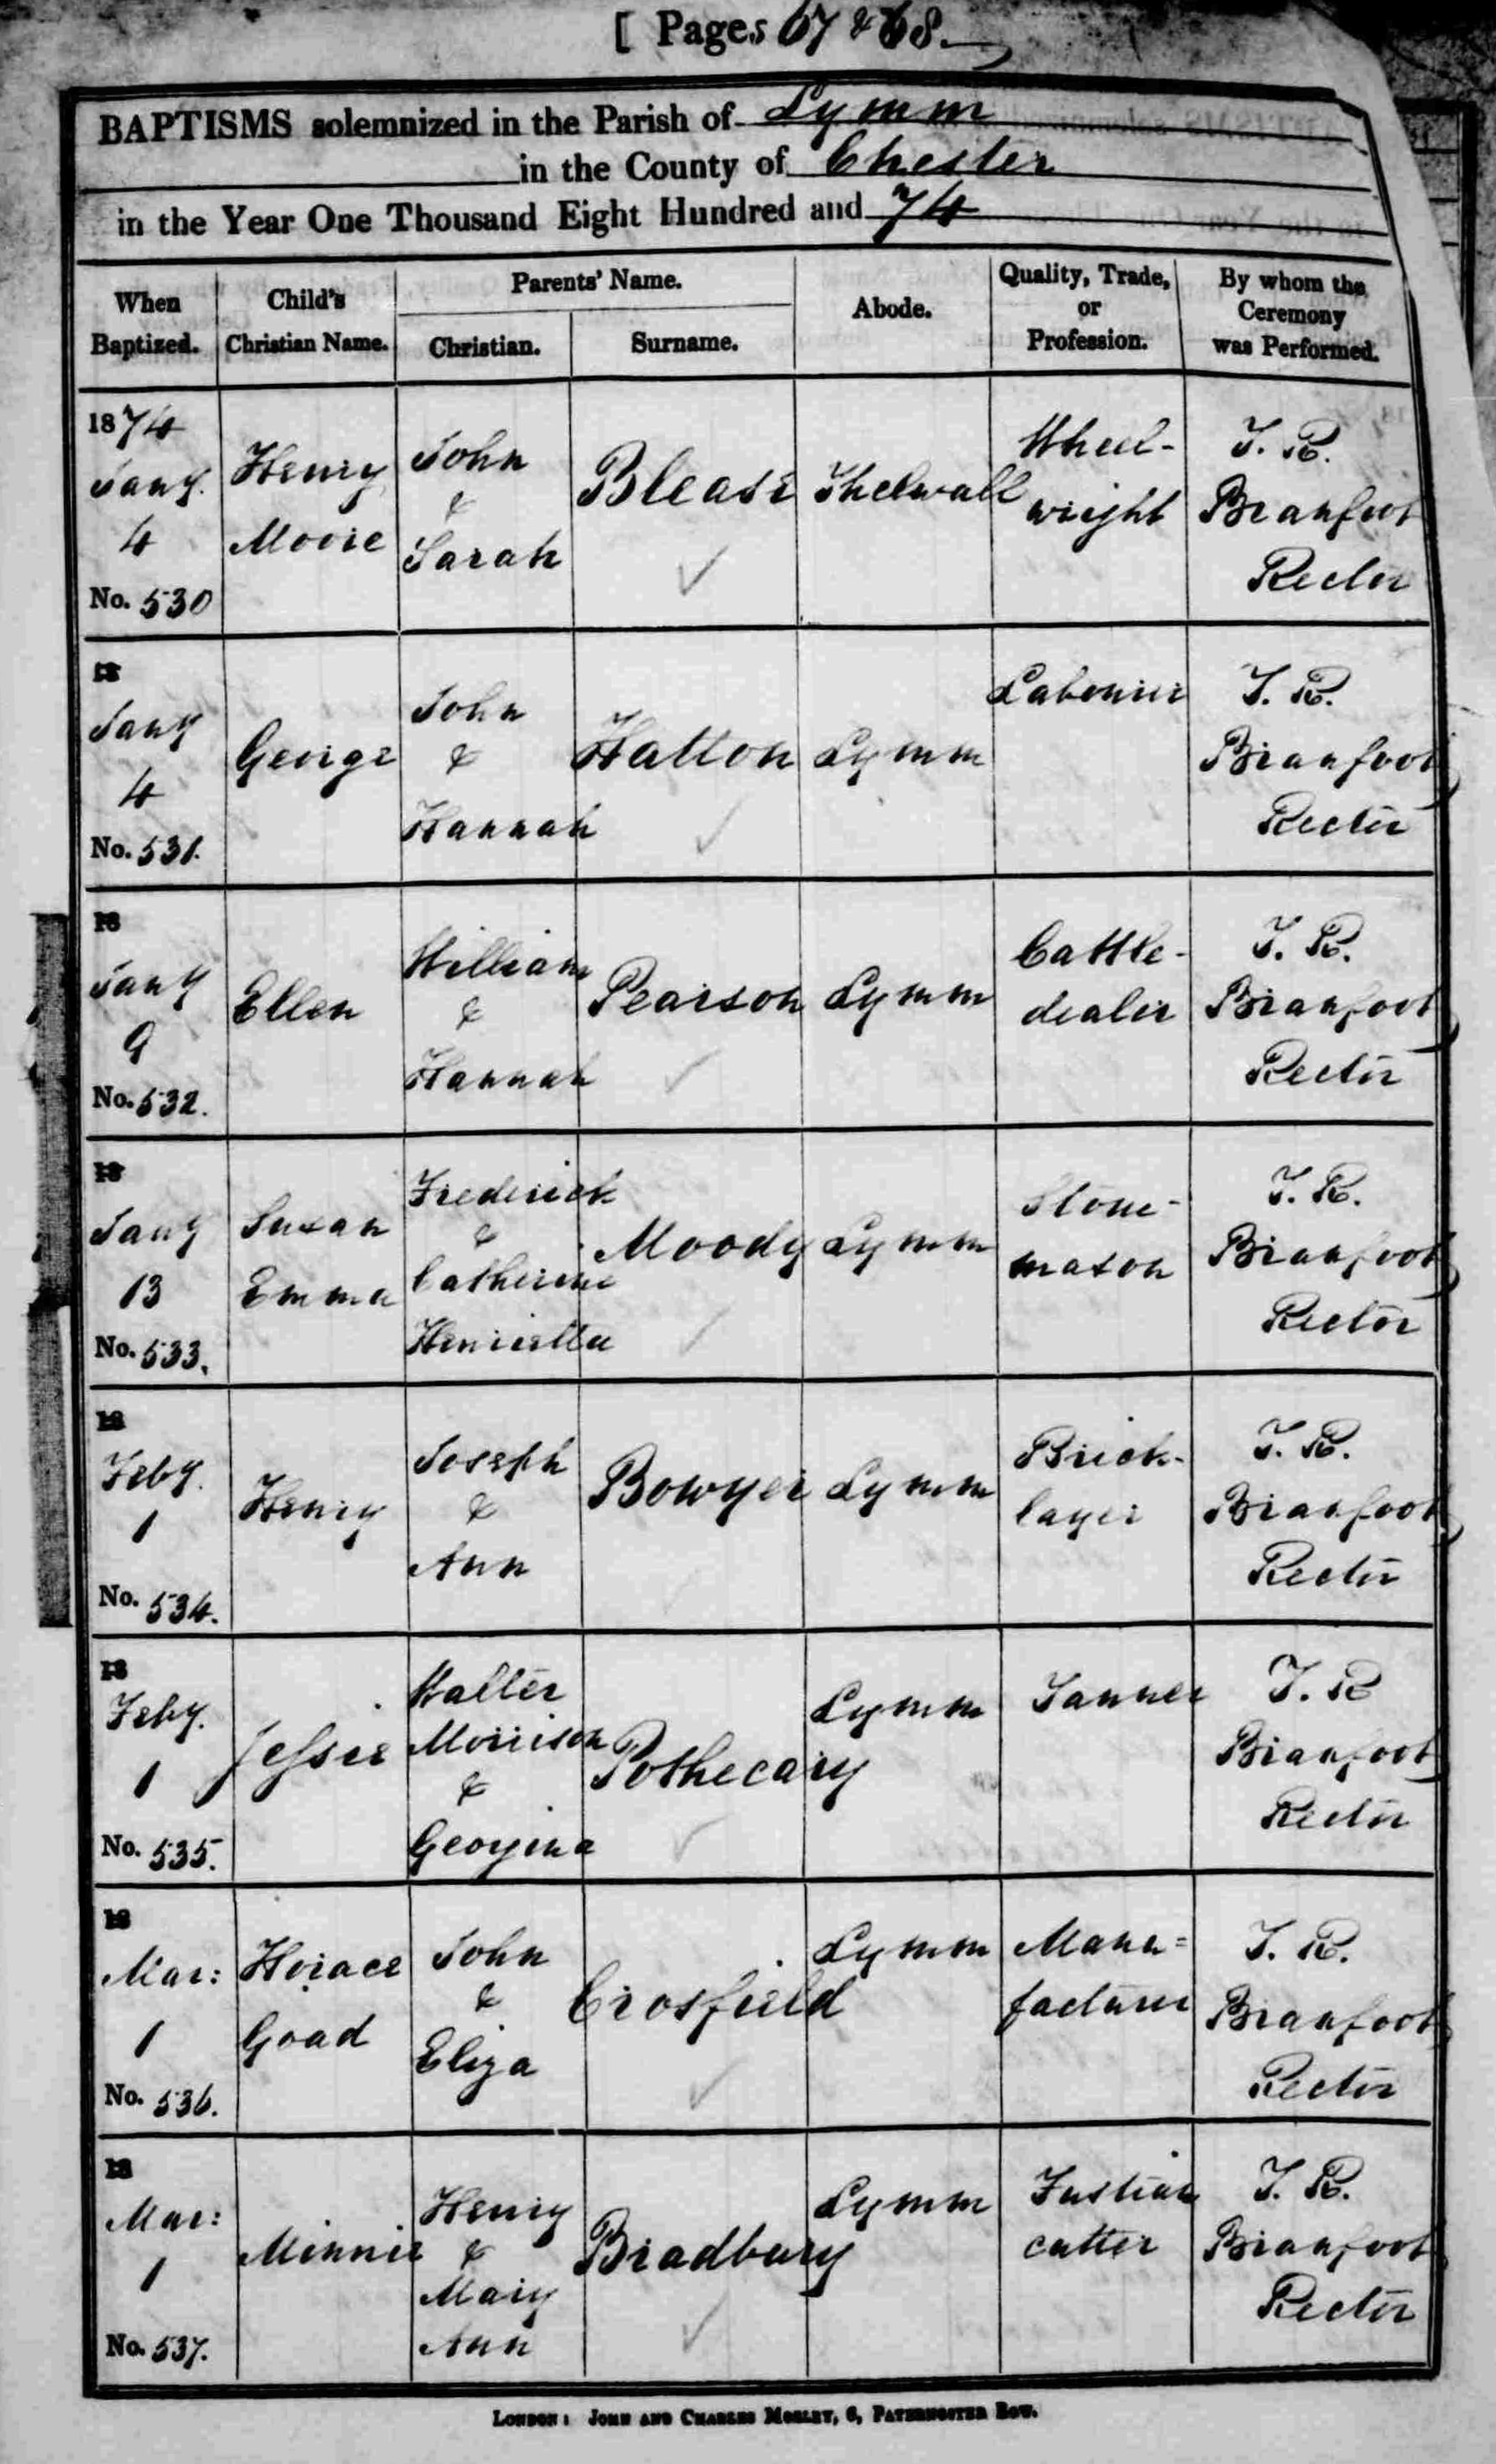 [ Pages 67 & 68.
BAPTISMS solemnized in the Parish of Lymm
in the County of Chester
in the Year One Thousand Eight Hundred and 74
When Baptized.
Child's Christian Name.
Parents' Name.
Christian.
Surname.
Abode.
Quality, Trade, or Profession.
By whom the Ceremony was Performed.
1874
Jany.
4
No. 530
Henry
Moore
John
&
Sarah
Blease
Thelwall
Wheel-
wright
T. R.
Branfoot
Rector
18
Jany
4
No. 531.
George
John
&
Hannah
Hatton
Lymm
Labourer
T. R.
Branfoot
Rector
18
Jany
9
No. 532.
Ellen
William
&
Hannah
Pearson
Lymm
Cattle-
dealer
T. R.
Branfoot
Rector
18
Jany
13
No. 533.
Susan
Emma
Frederick
&
Catherine
Henrietta
Moody
Lymm
Stone-
mason
T. R.
Branfoot
Rector
18
Feby.
1
No. 534.
Henry
Joseph
&
Ann
Bowyer
Lymm
Brick-
layer
T. R.
Branfoot
Rector
18
Feby.
1
No. 535.
Jessie
Walter
Morrison
&
Georgina
Pothecary
Lymm
Tanner
T. R
Branfoot
Rector
18
Mar:
1
No. 536.
Horace
Goad
John
&
Eliza
Crosfield
Lymm
Manu=
facturer
T. R.
Branfoot
Rector
18
Mar:
1
No. 537.
Minnie
Henry
&
Mary
Ann
Bradbury
Lymm
Fustian
cutter
T. R.
Branfoot
Rector
LONDON: JOHN AND CHARLES MOZLEY, 6, PATERNOSTER ROW.